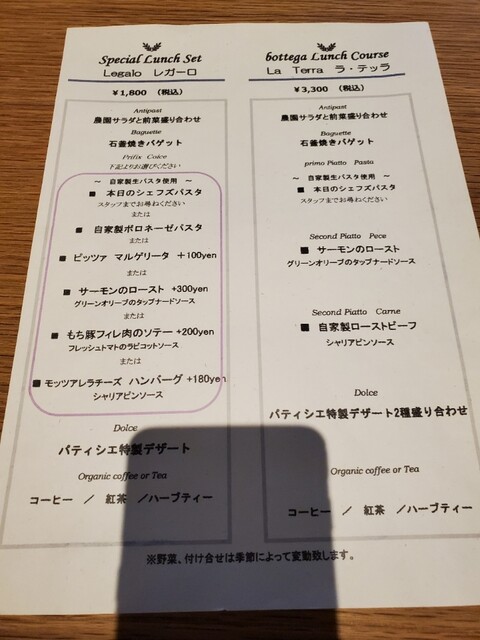 Special Lunch Set
Legalo レガーロ
¥1,800 (税込)
Antipast
農園サラダと前菜盛り合わせ
Baguette
石釜焼きバゲット
Prifix Coice
下記よりお選びください
～ 自家製生パスタ使用 ～
■ 本日のシェフズパスタ
スタッフまでお尋ねください
または
■ 自家製ボロネーゼパスタ
または
■ ピッツァ マルゲリータ ＋100yen
または
■ サーモンのロースト +300yen
グリーンオリーブのタップナードソース
または
■ もち豚フィレ肉のソテー +200yen
フレッシュトマトのラビコットソース
または
■ モッツアレラチーズ ハンバーグ +180yen
シャリアピンソース
Dolce
パティシエ特製デザート
Organic coffee or Tea
コーヒー ／ 紅茶 ／ハーブティー
bottega Lunch Course
La Terra ラ・テッラ
¥3,300 (税込)
Antipast
農園サラダと前菜盛り合わせ
Baguette
石釜焼きバゲット
primo Piatto Pasta
～ 自家製生パスタ使用 ～
■ 本日のシェフズパスタ
スタッフまでお尋ねください
Second Piatto Pece
■ サーモンのロースト
グリーンオリーブのタップナードソース
Second Piatto Carne
■ 自家製ローストビーフ
シャリアピンソース
Dolce
パティシエ特製デザート2種盛り合わせ
Organic coffee or Tea
コーヒー ／ 紅茶 ／ハーブティー
※野菜、付け合せは季節によって変動致します。